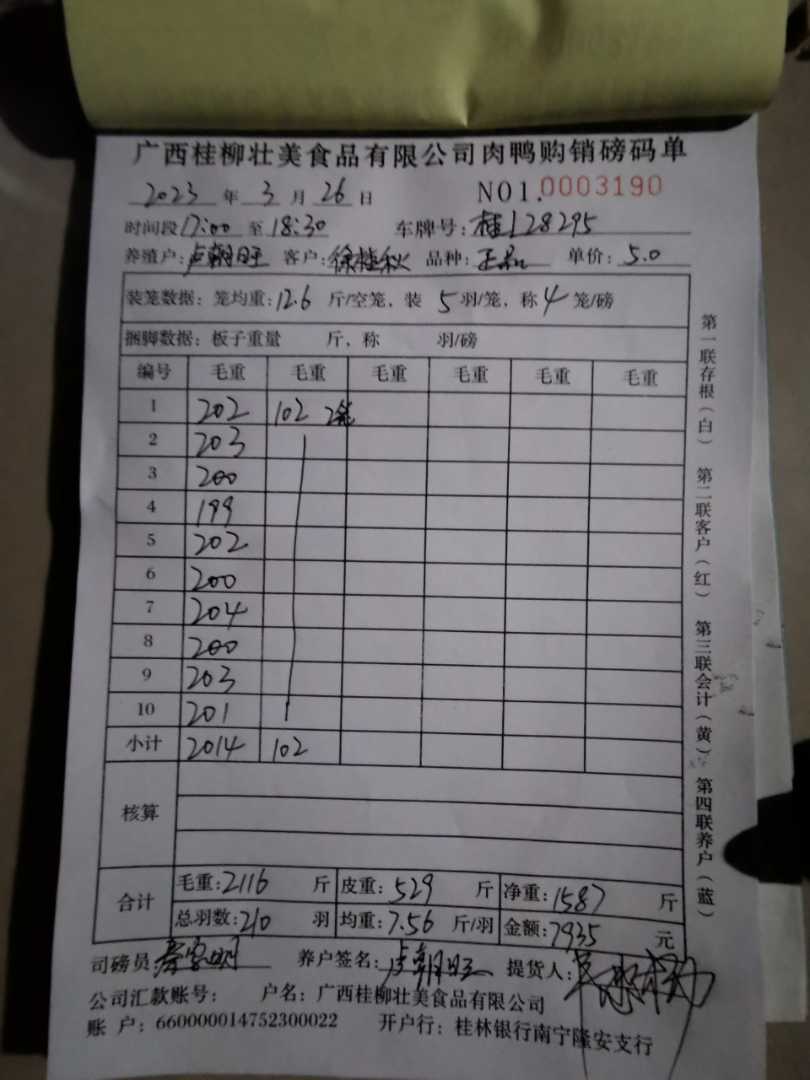 广西桂柳壮美食品有限公司肉鸭购销磅码单
2023 年 3 月 26 日 NO1.0003190
时间段17:00 至 18:30 车牌号：桂L28295
养殖户：卢朝旺 客户：徐桂秋 品种： 单价：5.0
装笼数据：笼均重：12.6 斤/空笼，装 5 羽/笼，称 4 笼/磅
捆脚数据：板子重量 斤，称 羽/磅
编号 毛重 毛重 毛重 毛重 毛重 毛重
1 202 102 2笼
2 203
3 200
4 199
5 202
6 200
7 204
8 200
9 203
10 201
小计 2014 102
核算
合计 毛重：2116 斤 皮重：529 斤 净重：1587 斤
总羽数：210 羽 均重：7.56 斤/羽 金额：7935 元
司磅员 养户签名：卢朝旺 提货人：
公司汇款账号： 户名：广西桂柳壮美食品有限公司
账 户：660000014752300022 开户行：桂林银行南宁隆安支行
第一联存根（白） 第二联客户（红） 第三联会计（黄） 第四联养户（蓝）